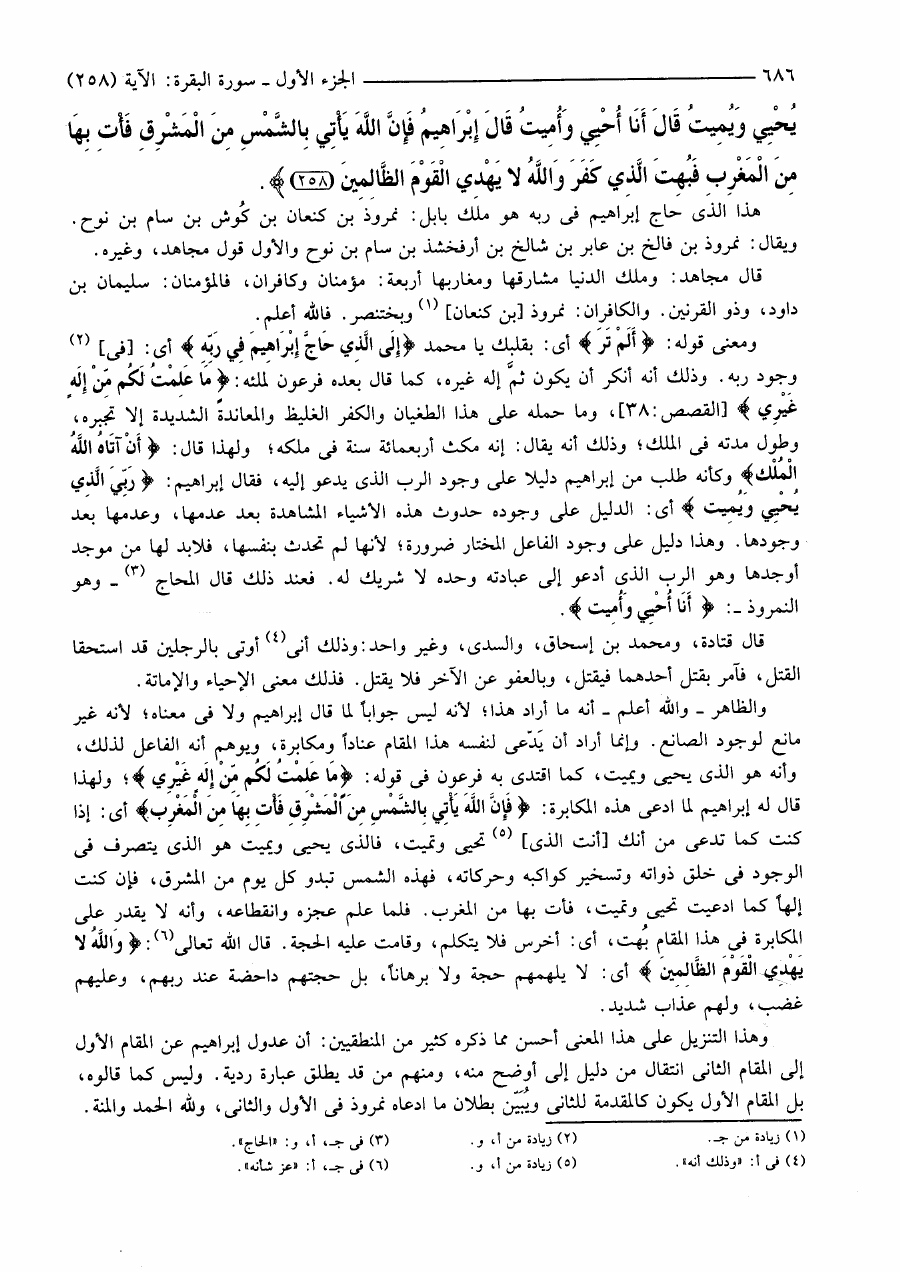 ٦٨٦ ـــــــــــــــــــــــــــــــ الجزء الأول ـ سورة البقرة: الآية (٢٥٨)
يُحْيِي وَيُمِيتُ قَالَ أَنَا أُحْيِي وَأُمِيتُ قَالَ إِبْرَاهِيمُ فَإِنَّ اللَّهَ يَأْتِي بِالشَّمْسِ مِنَ الْمَشْرِقِ فَأْتِ بِهَا
مِنَ الْمَغْرِبِ فَبُهِتَ الَّذِي كَفَرَ وَاللَّهُ لا يَهْدِي الْقَوْمَ الظَّالِمِينَ (٢٥٨) ﴾ .
هذا الذى حاج إبراهيم فى ربه هو ملك بابل: نمروذ بن كنعان بن كُوش بن سام بن نوح.
ويقال: نمروذ بن فالخ بن عابر بن شالخ بن أرفخشذ بن سام بن نوح والأول قول مجاهد، وغيره.
قال مجاهد: وملك الدنيا مشارقها ومغاربها أربعة: مؤمنان وكافران، فالمؤمنان: سليمان بن
داود، وذو القرنين. والكافران: نمروذ [بن كنعان] (١) وبختنصر. فالله أعلم.
ومعنى قوله: ﴿ أَلَمْ تَرَ ﴾ أى: بقلبك يا محمد ﴿إِلَى الَّذِي حَاجَّ إِبْرَاهِيمَ فِي رَبِّهِ ﴾ أى: [فى] (٢)
وجود ربه. وذلك أنه أنكر أن يكون ثمَّ إله غيره، كما قال بعده فرعون لملئه: ﴿ مَا عَلِمْتُ لَكُم مِّنْ إِلَهٍ
غَيْرِي ﴾ [القصص:٣٨]، وما حمله على هذا الطغيان والكفر الغليظ والمعاندة الشديدة إلا تجبره،
وطول مدته فى الملك؛ وذلك أنه يقال: إنه مكث أربعمائة سنة فى ملكه؛ ولهذا قال: ﴿ أَنْ آتَاهُ اللَّهُ
الْمُلْكَ﴾ وكأنه طلب من إبراهيم دليلا على وجود الرب الذى يدعو إليه، فقال إبراهيم: ﴿ رَبِّيَ الَّذِي
يُحْيِي وَيُمِيتُ ﴾ أى: الدليل على وجوده حدوث هذه الأشياء المشاهدة بعد عدمها، وعدمها بعد
وجودها. وهذا دليل على وجود الفاعل المختار ضرورة؛ لأنها لم تحدث بنفسها، فلابد لها من موجد
أوجدها وهو الرب الذى أدعو إلى عبادته وحده لا شريك له. فعند ذلك قال المحاج (٣) ـ وهو
النمروذ ـ: ﴿ أَنَا أُحْيِي وَأُمِيتُ ﴾.
قال قتادة، ومحمد بن إسحاق، والسدى، وغير واحد:وذلك أنى(٤) أوتى بالرجلين قد استحقا
القتل، فآمر بقتل أحدهما فيقتل، وبالعفو عن الآخر فلا يقتل. فذلك معنى الإحياء والإماتة.
والظاهر ـ والله أعلم ـ أنه ما أراد هذا؛ لأنه ليس جواباً لما قال إبراهيم ولا فى معناه؛ لأنه غير
مانع لوجود الصانع. وإنما أراد أن يَدّعى لنفسه هذا المقام عناداً ومكابرة، ويوهم أنه الفاعل لذلك،
وأنه هو الذى يحيى ويميت، كما اقتدى به فرعون فى قوله: ﴿مَا عَلِمْتُ لَكُم مِّنْ إِلَهٍ غَيْرِي ﴾؛ ولهذا
قال له إبراهيم لما ادعى هذه المكابرة: ﴿ فَإِنَّ اللَّهَ يَأْتِي بِالشَّمْسِ مِنَ الْمَشْرِقِ فَأْتِ بِهَا مِنَ الْمَغْرِبِ﴾ أى: إذا
كنت كما تدعى من أنك [أنت الذى] (٥) تحيى وتميت، فالذى يحيى ويميت هو الذى يتصرف فى
الوجود فى خلق ذواته وتسخير كواكبه وحركاته، فهذه الشمس تبدو كل يوم من المشرق، فإن كنت
إلهاً كما ادعيت تحيى وتميت، فأت بها من المغرب. فلما علم عجزه وانقطاعه، وأنه لا يقدر على
المكابرة فى هذا المقام بُهت، أى: أخرس فلا يتكلم، وقامت عليه الحجة. قال الله تعالى(٦): ﴿ وَاللَّهُ لا
يَهْدِي الْقَوْمَ الظَّالِمِينَ ﴾ أى: لا يلهمهم حجة ولا برهاناً، بل حجتهم داحضة عند ربهم، وعليهم
غضب، ولهم عذاب شديد.
وهذا التنزيل على هذا المعنى أحسن مما ذكره كثير من المنطقيين: أن عدول إبراهيم عن المقام الأول
إلى المقام الثانى انتقال من دليل إلى أوضح منه، ومنهم من قد يطلق عبارة ردية. وليس كما قالوه،
بل المقام الأول يكون كالمقدمة للثانى ويُبَيّن بطلان ما ادعاه نمروذ فى الأول والثانى، ولله الحمد والمنة.
(١) زيادة من جـ. (٢) زيادة من أ، و. (٣) فى جـ، أ، و: «الحاج».
(٤) فى أ: «وذلك أنه». (٥) زيادة من أ، و. (٦) فى جـ، أ: «عز شأنه».